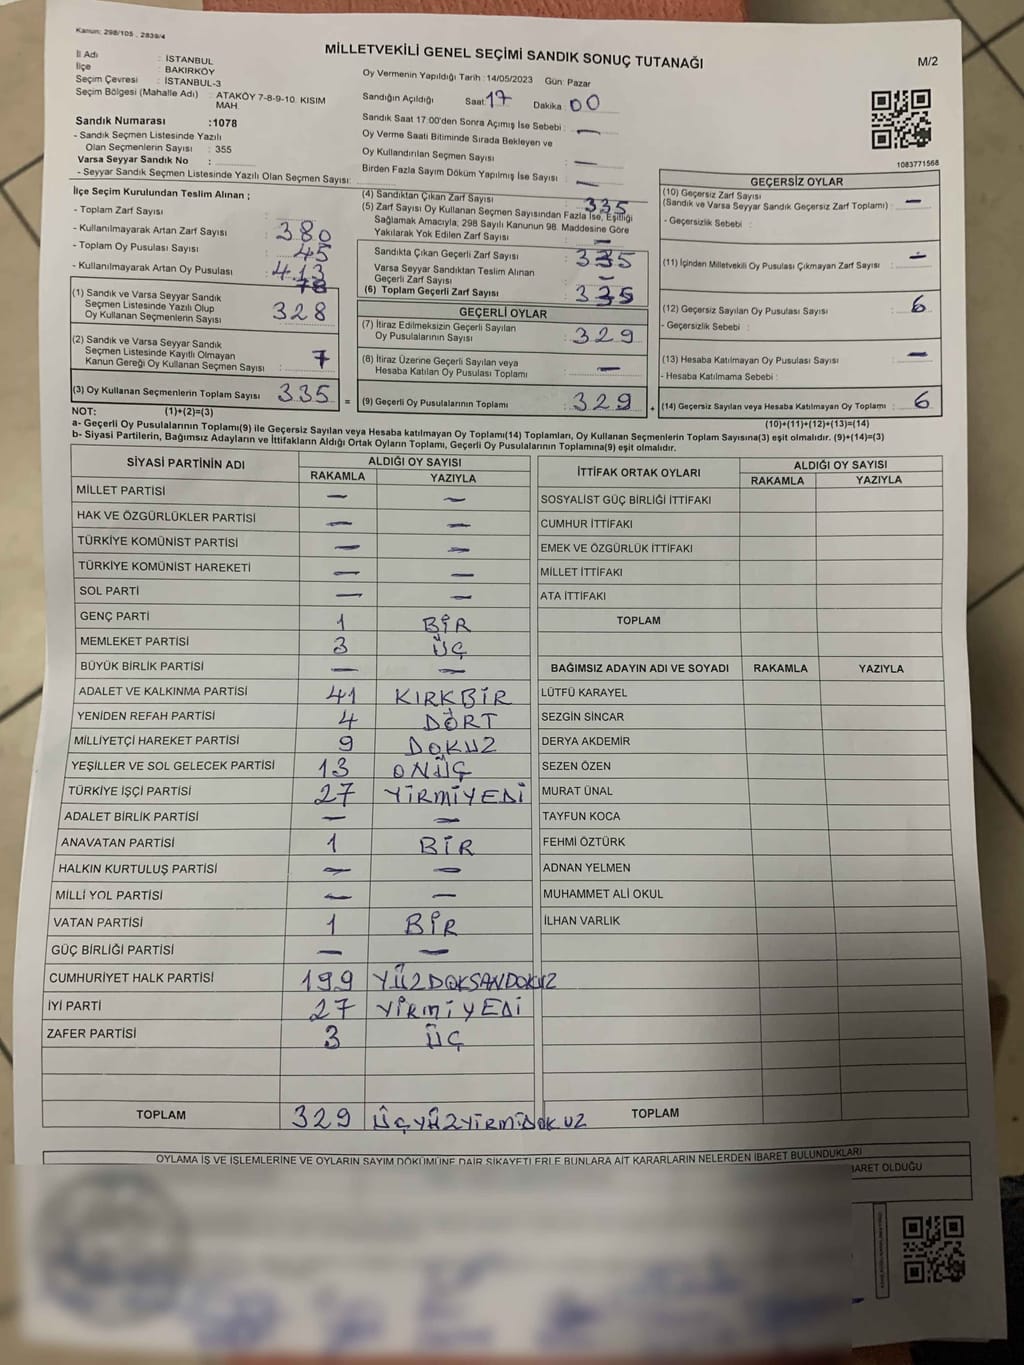 Kanun: 298/105 , 2839/4
MİLLETVEKİLİ GENEL SEÇİMİ SANDIK SONUÇ TUTANAĞI
M/2
İl Adı : İSTANBUL
İlçe : BAKIRKÖY
Seçim Çevresi : İSTANBUL-3
Seçim Bölgesi (Mahalle Adı) : ATAKÖY 7-8-9-10. KISIM
MAH.
Sandık Numarası :1078
- Sandık Seçmen Listesinde Yazılı
Olan Seçmenlerin Sayısı : 355
Varsa Seyyar Sandık No :
- Seyyar Sandık Seçmen Listesinde Yazılı Olan Seçmen Sayısı:
Oy Vermenin Yapıldığı Tarih : 14/05/2023 Gün: Pazar
Sandığın Açıldığı Saat: 17 Dakika 00
Sandık Saat 17:00'den Sonra Açımış İse Sebebi : —
Oy Verme Saati Bitiminde Sırada Bekleyen ve
Oy Kullandırılan Seçmen Sayısı : —
Birden Fazla Sayım Döküm Yapılmış İse Sayısı : —
1083771568
İlçe Seçim Kurulundan Teslim Alınan ;
- Toplam Zarf Sayısı : 380
- Kullanılmayarak Artan Zarf Sayısı : 45
- Toplam Oy Pusulası Sayısı : 413
- Kullanılmayarak Artan Oy Pusulası : 78
(1) Sandık ve Varsa Seyyar Sandık
Seçmen Listesinde Yazılı Olup
Oy Kullanan Seçmenlerin Sayısı : 328
(2) Sandık ve Varsa Seyyar Sandık
Seçmen Listesinde Kayıtlı Olmayan
Kanun Gereği Oy Kullanan Seçmen Sayısı : 7
(3) Oy Kullanan Seçmenlerin Toplam Sayısı 335 =
(4) Sandıktan Çıkan Zarf Sayısı : 335
(5) Zarf Sayısı Oy Kullanan Seçmen Sayısından Fazla İse, Eşitliği
Sağlamak Amacıyla; 298 Sayılı Kanunun 98. Maddesine Göre
Yakılarak Yok Edilen Zarf Sayısı : —
Sandıkta Çıkan Geçerli Zarf Sayısı : 335
Varsa Seyyar Sandıktan Teslim Alınan
Geçerli Zarf Sayısı : —
(6) Toplam Geçerli Zarf Sayısı : 335
GEÇERLİ OYLAR
(7) İtiraz Edilmeksizin Geçerli Sayılan
Oy Pusulalarının Sayısı : 329
(8) İtiraz Üzerine Geçerli Sayılan veya
Hesaba Katılan Oy Pusulası Toplamı : —
(9) Geçerli Oy Pusulalarının Toplamı : 329 +
GEÇERSİZ OYLAR
(10) Geçersiz Zarf Sayısı
(Sandık ve Varsa Seyyar Sandık Geçersiz Zarf Toplamı) : —
- Geçersizlik Sebebi :
(11) İçinden Milletvekili Oy Pusulası Çıkmayan Zarf Sayısı : —
(12) Geçersiz Sayılan Oy Pusulası Sayısı : 6
- Geçersizlik Sebebi :
(13) Hesaba Katılmayan Oy Pusulası Sayısı : —
- Hesaba Katılmama Sebebi :
(14) Geçersiz Sayılan veya Hesaba Katılmayan Oy Toplamı : 6
NOT: (1)+(2)=(3) (10)+(11)+(12)+(13)=(14)
a- Geçerli Oy Pusulalarının Toplamı(9) ile Geçersiz Sayılan veya Hesaba katılmayan Oy Toplamı(14) Toplamları, Oy Kullanan Seçmenlerin Toplam Sayısına(3) eşit olmalıdır. (9)+(14)=(3)
b- Siyasi Partilerin, Bağımsız Adayların ve İttifakların Aldığı Ortak Oyların Toplamı, Geçerli Oy Pusulalarının Toplamına(9) eşit olmalıdır.
SİYASİ PARTİNİN ADI ALDIĞI OY SAYISI
RAKAMLA YAZIYLA
MİLLET PARTİSİ — —
HAK VE ÖZGÜRLÜKLER PARTİSİ — —
TÜRKİYE KOMÜNİST PARTİSİ — —
TÜRKİYE KOMÜNİST HAREKETİ — —
SOL PARTİ — —
GENÇ PARTİ 1 BİR
MEMLEKET PARTİSİ 3 ÜÇ
BÜYÜK BİRLİK PARTİSİ — —
ADALET VE KALKINMA PARTİSİ 41 KIRKBİR
YENİDEN REFAH PARTİSİ 4 DÖRT
MİLLİYETÇİ HAREKET PARTİSİ 9 DOKUZ
YEŞİLLER VE SOL GELECEK PARTİSİ 13 ONÜÇ
TÜRKİYE İŞÇİ PARTİSİ 27 YİRMİYEDİ
ADALET BİRLİK PARTİSİ — —
ANAVATAN PARTİSİ 1 BİR
HALKIN KURTULUŞ PARTİSİ — —
MİLLİ YOL PARTİSİ — —
VATAN PARTİSİ 1 BİR
GÜÇ BİRLİĞİ PARTİSİ — —
CUMHURİYET HALK PARTİSİ 199 YÜZDOKSANDOKUZ
İYİ PARTİ 27 YİRMİYEDİ
ZAFER PARTİSİ 3 ÜÇ
TOPLAM 329 ÜÇYÜZYİRMİDOKUZ
İTTİFAK ORTAK OYLARI ALDIĞI OY SAYISI
RAKAMLA YAZIYLA
SOSYALİST GÜÇ BİRLİĞİ İTTİFAKI
CUMHUR İTTİFAKI
EMEK VE ÖZGÜRLÜK İTTİFAKI
MİLLET İTTİFAKI
ATA İTTİFAKI
TOPLAM
BAĞIMSIZ ADAYIN ADI VE SOYADI RAKAMLA YAZIYLA
LÜTFÜ KARAYEL
SEZGİN SİNCAR
DERYA AKDEMİR
SEZEN ÖZEN
MURAT ÜNAL
TAYFUN KOCA
FEHMİ ÖZTÜRK
ADNAN YELMEN
MUHAMMET ALİ OKUL
İLHAN VARLIK
TOPLAM
OYLAMA İŞ VE İŞLEMLERİNE VE OYLARIN SAYIM DÖKÜMÜNE DAİR ŞİKAYETLERLE BUNLARA AİT KARARLARIN NELERDEN İBARET BULUNDUKLARI
İBARET OLDUĞU